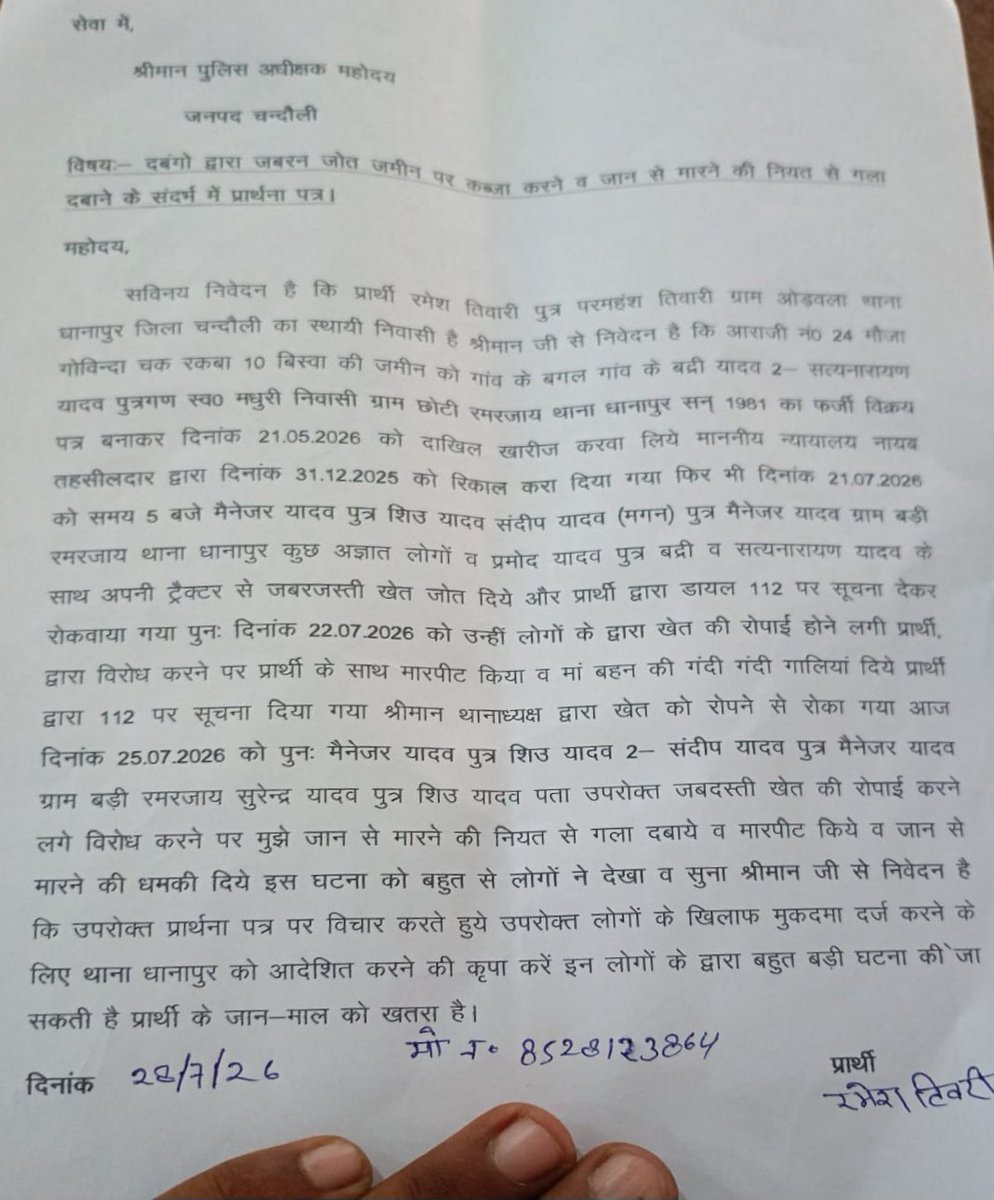 सेवा में,
श्रीमान पुलिस अधीक्षक महोदय
जनपद चन्दौली
विषयः– दबंगो द्वारा जबरन जोत जमीन पर कब्जा करने व जान से मारने की नियत से गला
दबाने के संदर्भ में प्रार्थना पत्र।
महोदय,
सविनय निवेदन है कि प्रार्थी रमेश तिवारी पुत्र परमहंश तिवारी ग्राम ओड़वला थाना
धानापुर जिला चन्दौली का स्थायी निवासी है श्रीमान जी से निवेदन है कि आराजी नं0 24 मौजा
गोविन्दा चक रकबा 10 बिस्वा की जमीन को गांव के बगल गांव के बद्री यादव 2– सत्यनारायण
यादव पुत्रगण स्व0 मधुरी निवासी ग्राम छोटी रमरजाय थाना धानापुर सन् 1981 का फर्जी विक्रय
पत्र बनाकर दिनांक 21.05.2026 को दाखिल खारीज करवा लिये माननीय न्यायालय नायब
तहसीलदार द्वारा दिनांक 31.12.2025 को रिकाल करा दिया गया फिर भी दिनांक 21.07.2026
को समय 5 बजे मैनेजर यादव पुत्र शिउ यादव संदीप यादव (मगन) पुत्र मैनेजर यादव ग्राम बड़ी
रमरजाय थाना धानापुर कुछ अज्ञात लोगों व प्रमोद यादव पुत्र बद्री व सत्यनारायण यादव के
साथ अपनी ट्रैक्टर से जबरजस्ती खेत जोत दिये और प्रार्थी द्वारा डायल 112 पर सूचना देकर
रोकवाया गया पुनः दिनांक 22.07.2026 को उन्हीं लोगों के द्वारा खेत की रोपाई होने लगी प्रार्थी,
द्वारा विरोध करने पर प्रार्थी के साथ मारपीट किया व मां बहन की गंदी गंदी गालियां दिये प्रार्थी
द्वारा 112 पर सूचना दिया गया श्रीमान थानाध्यक्ष द्वारा खेत को रोपने से रोका गया आज
दिनांक 25.07.2026 को पुनः मैनेजर यादव पुत्र शिउ यादव 2– संदीप यादव पुत्र मैनेजर यादव
ग्राम बड़ी रमरजाय सुरेन्द्र यादव पुत्र शिउ यादव पता उपरोक्त जबदस्ती खेत की रोपाई करने
लगे विरोध करने पर मुझे जान से मारने की नियत से गला दबाये व मारपीट किये व जान से
मारने की धमकी दिये इस घटना को बहुत से लोगों ने देखा व सुना श्रीमान जी से निवेदन है
कि उपरोक्त प्रार्थना पत्र पर विचार करते हुये उपरोक्त लोगों के खिलाफ मुकदमा दर्ज करने के
लिए थाना धानापुर को आदेशित करने की कृपा करें इन लोगों के द्वारा बहुत बड़ी घटना की जा
सकती है प्रार्थी के जान–माल को खतरा है।
मो नं० 8528123864
दिनांक 28/7/26
प्रार्थी
रमेश तिवारी